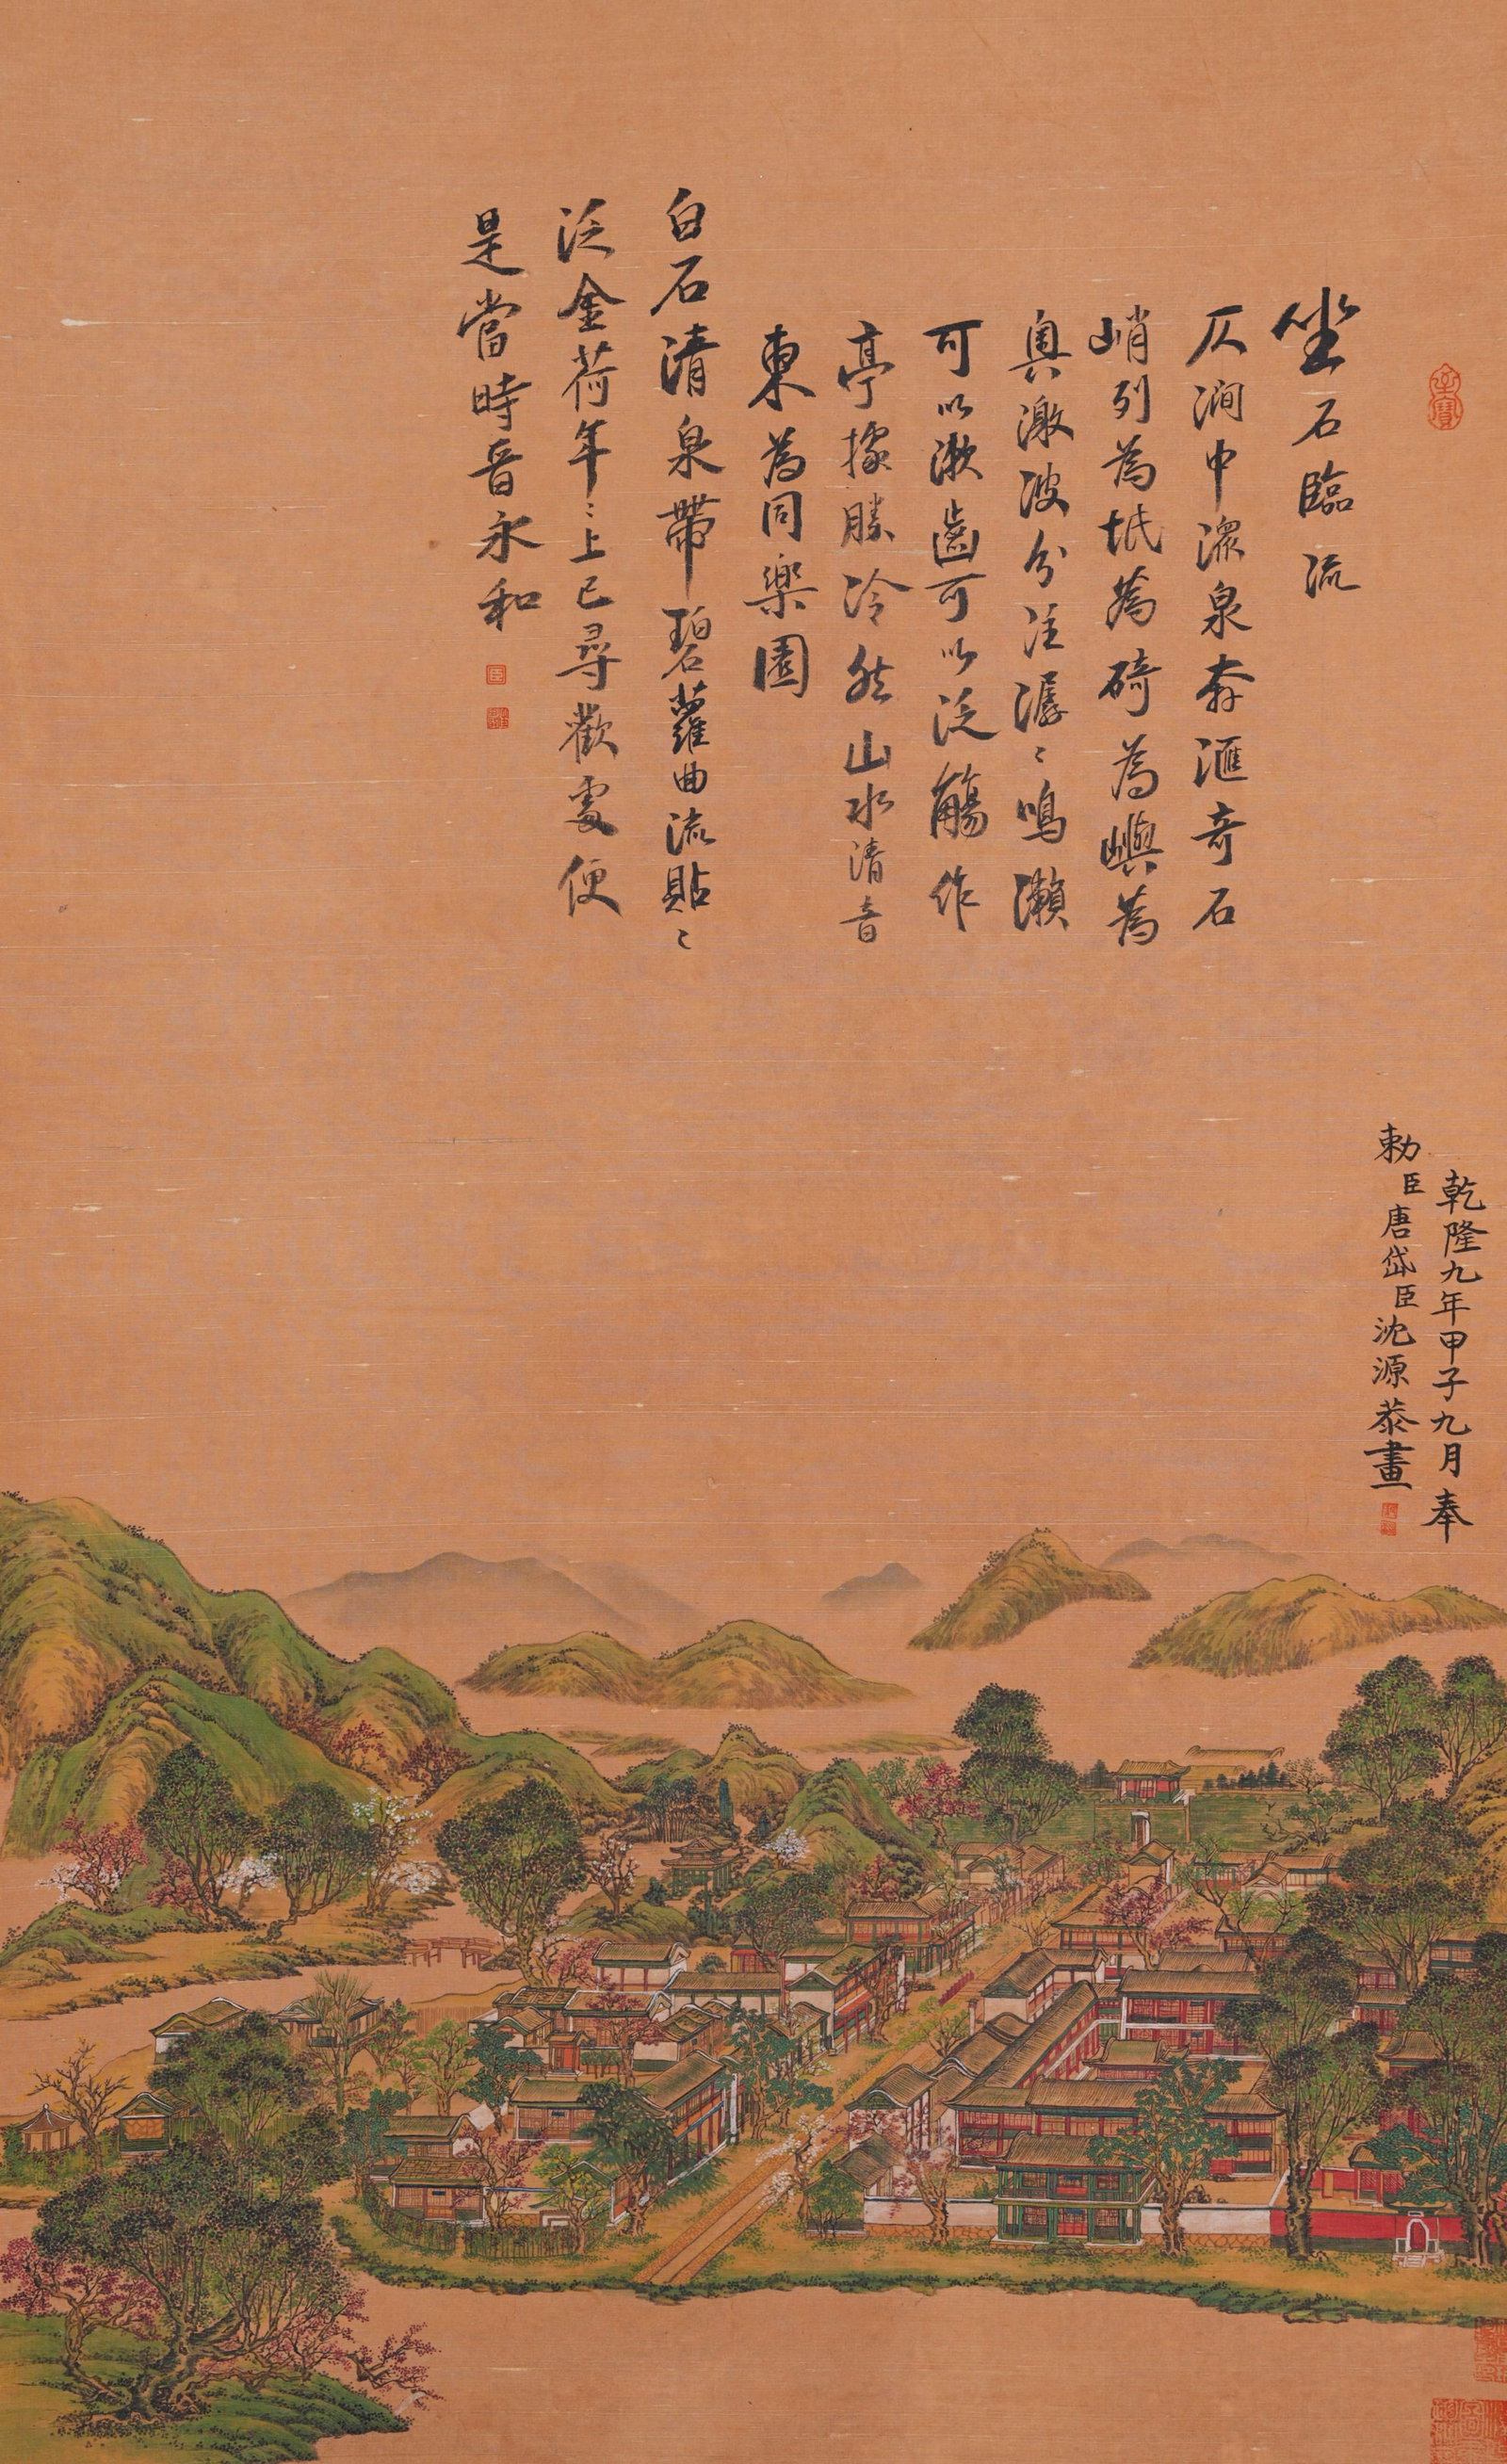 坐石臨流
仄澗中瀠泉奔滙奇石
峭列為坻為碕為嶼為
奧激波分注潺〻鳴瀨
可以漱齒可以泛觴作
亭據勝泠然山水清音
東為同樂園
白石清泉帶碧蘿曲流貼〻
泛金荷年〻上巳尋歡處便
是當時晉永和
乾隆九年甲子九月奉
勅臣唐岱臣沈源恭畫